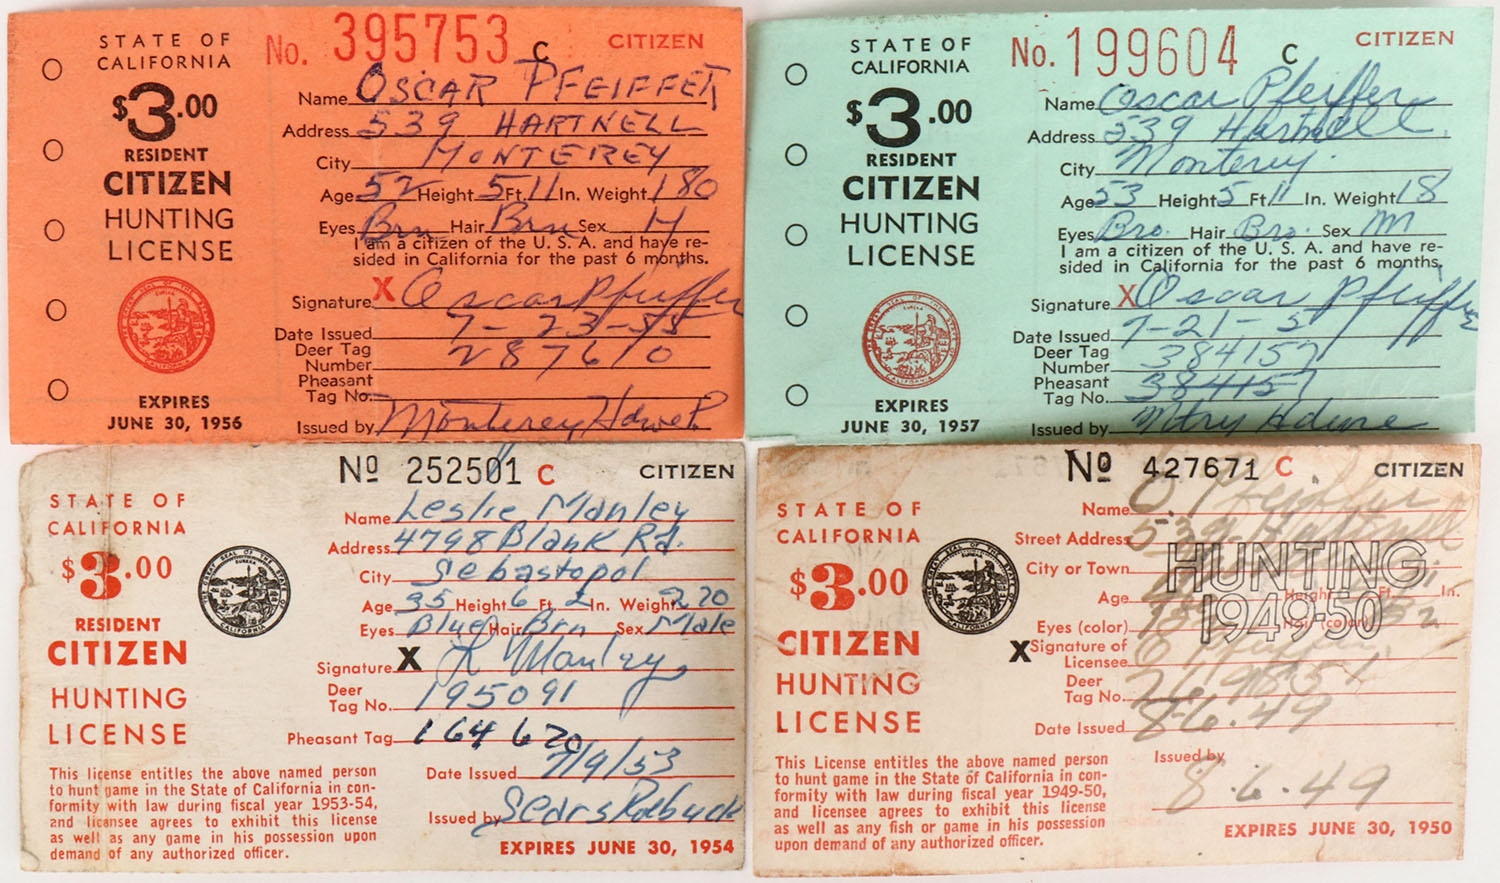 STATE OF
CALIFORNIA
$3.00
RESIDENT
CITIZEN
HUNTING
LICENSE
EXPIRES
JUNE 30, 1956
No. 395753 C CITIZEN
Name OSCAR PFEIFFER
Address 539 HARTNELL
City MONTEREY
Age 52 Height 5 Ft. 11 In. Weight 180
Eyes Brn Hair Brn Sex M
I am a citizen of the U. S. A. and have re-
sided in California for the past 6 months.
Signature X Oscar Pfeiffer
Date Issued 7-23-55
Deer Tag
Number 287610
Pheasant
Tag No.
Issued by Monterey Hdwe
STATE OF
CALIFORNIA
$3.00
RESIDENT
CITIZEN
HUNTING
LICENSE
EXPIRES
JUNE 30, 1957
No. 199604 C CITIZEN
Name Oscar Pfeiffer
Address 539 Hartnell
City Monterey.
Age 53 Height 5 Ft 11 In. Weight 18
Eyes Bro. Hair Bro. Sex M
I am a citizen of the U. S. A. and have re-
sided in California for the past 6 months.
Signature X Oscar Pfeiffer
Date Issued 7-21-5
Deer Tag
Number 384157
Pheasant
Tag No. 384157
Issued by Mtry Hdwe
STATE OF
CALIFORNIA
$3.00
RESIDENT
CITIZEN
HUNTING
LICENSE
This license entitles the above named person
to hunt game in the State of California in con-
formity with law during fiscal year 1953-54,
and licensee agrees to exhibit this license
as well as any game in his possession upon
demand of any authorized officer.
No 252501 C CITIZEN
Name Leslie Manley
Address 4798 Blank Rd.
City Sebastopol
Age 35 Height 6 Ft 2 In. Weight 220
Eyes Blue Hair Brn Sex Male
Signature X L Manley
Deer
Tag No. 195091
Pheasant Tag 164620
Date Issued 7/9/53
Issued by Sears Roebuck
EXPIRES JUNE 30, 1954
STATE OF
CALIFORNIA
$3.00
CITIZEN
HUNTING
LICENSE
This License entitles the above named person
to hunt game in the State of California in con-
formity with law during fiscal year 1949-50,
and licensee agrees to exhibit this license
as well as any fish or game in his possession
upon demand of any authorized officer.
No 427671 C CITIZEN
Name O. Pfeiffer
Street Address 539 Hartnell
City or Town
HUNTING
1949-50
Age Height Ft. In.
Eyes (color) Hair (color)
X Signature of
Licensee
Deer
Tag No.
Date Issued 8-6-49
Issued by
8.6.49
EXPIRES JUNE 30, 1950